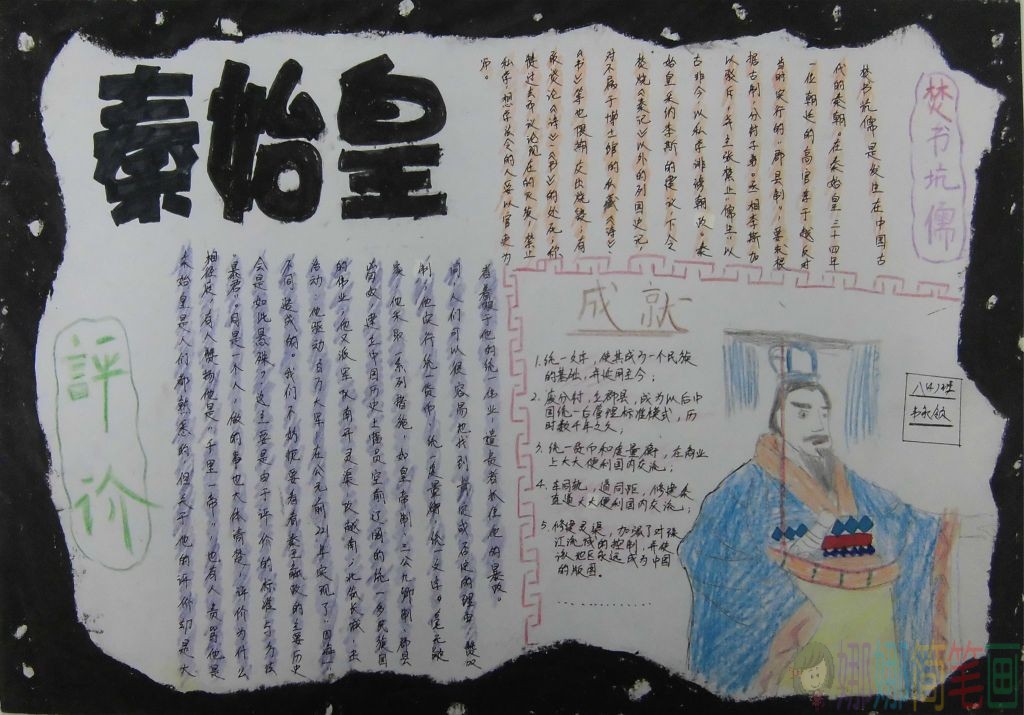 秦始皇
焚书坑儒
焚书坑儒，是发生在中国古
代的秦朝。在秦始皇三十四年
一位朝廷的高官淳于越反对
当时实行的"郡县制"，要求根
据古制，分封子弟。丞相李斯加
以驳斥，并主张禁止"儒生"以
古非今，以私学诽谤朝政。秦
始皇采纳李斯的建议，下令
焚烧《秦记》以外的列国史记
对不属于博士馆的私藏《诗》、
《书》等也限期交出烧毁；有
敢谈论《诗》《书》的处死，称
赞过去而议论现在的灭族；禁止
私学，想学法令的人要以官吏为
师。
評价
秦始皇是人们都熟悉的，但关于他的评价却是大
相径庭，有人赞扬他是"千里一帝"，也有人责骂他是
"暴君"。同是一个人，做的事也大体清楚，评价为什么
会是如此悬殊？这主要是由于评价的标准与方法
不同造成的。我们不妨扼要看看秦王嬴政的主要历史
活动：他驱动百万大军，在公元前221年实现了"四海一"
的伟业，他又派军队南开灵渠，攻越南，北筑长城，击
匈奴，建立中国历史上幅员空前辽阔的统一多民族国
家，他采取一系列措施，如皇帝制、三公九卿制、郡县
制，他实行统一货币，统一度量衡，统一文字。毫无疑
问，人们可以很容易地找到肯定或否定的理由，赞叹
者着眼于他的统一伟业，谴责者抓住他的暴政。
成就
1. 统一文字，使其成为一个民族
的基础，并使用至今；
2. 废分封，立郡县，成为以后中
国统一后管理标准模式，历
时数千年之久；
3. 统一货币和度量衡，在商业
上大大便利国内交流；
4. 车同轨，道同距，修建秦
直道大大便利国内交流；
5. 修建灵渠，加强了对珠
江流域的控制，并使
该地区永远成为中国
的版图。
…………
八(4)班
娜娜简笔画